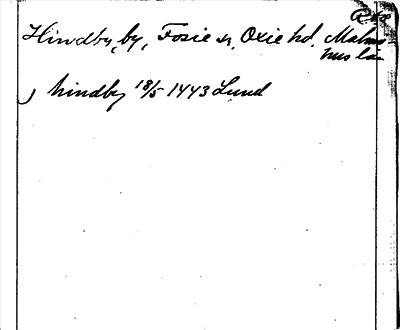 Hindby, by, Fosie sn, Oxie hd. Malmö-
hus län
j hindby 18/5 1443 Lund